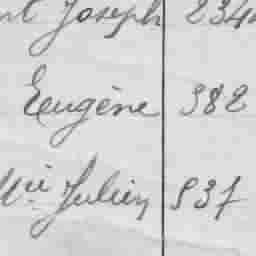 Joseph 234
Eugène 382
Mie Julien 837